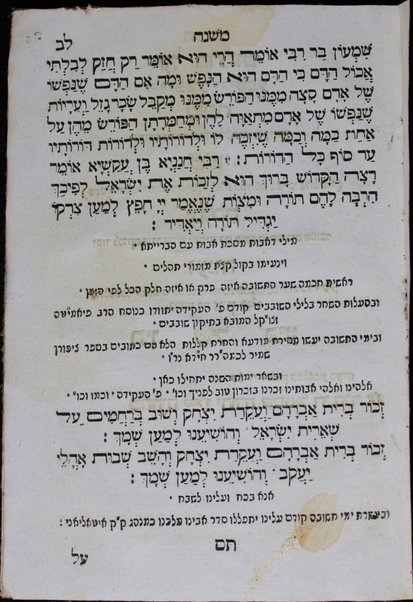 משנה
לב
שמעון בר רבי אומר הרי הוא אומר רק חזק לבלתי
אכול הדם כי הדם הוא הנפש ומה אם הדם שנפשו
של אדם קצה ממנו הפורש ממנו מקבל שכר גזל ועריות
שנפשו של אדם מתאוה להן ומחמדתן הפורש מהן על
אחת כמה וכמה שיזכה לו ולדורותיו ולדורות דורותיו
עד סוף כל הדורות: רבי חנניא בן עקשיא אומר
רצה הקדוש ברוך הוא לזכות את ישראל לפיכך
הרבה להם תורה ומצות שנאמר יי חפץ למען צדקו
יגדיל תורה ויאדיר:
מילי דאבות מסכת אבות עם הברייתא
וינעימו בקול קצת מזמורי תהלים
ראשית חכמה שער התשובה איזה פרק או איזה חלק הכל לפי הזמן
ובמעלות השחר בלילי השובבים קודם פ' העקידה יתוודו בנוסח הרב
המובא בתיקון שובבים
ובימי התשובה יעשו מהירת מודעא והתרת קללות הלא הם כתובים בספר ציפורן
שמיר לכמה"ר חי"דא נר"ו
ובשאר ימות השנה יתחילו כאן
אלהינו ואלהי אבותינו זכרנו בזכרון טוב לפניך וכו' פ' העקידה וכמו וכו'
זכור ברית אברהם ועקדת יצחק ושוב ברחמים על
שארית ישראל והושיענו למען שמך:
זכור ברית אברהם ועקדת יצחק והשב שבות אהלי
יעקב והושיענו למען שמך:
אנא בכח ועלינו לשבח
ובעשרת ימי תשובה קודם עלינו יתפללו סדר אבינו מלכנו כמנהג ק"ק איטאליאני:
תם
על